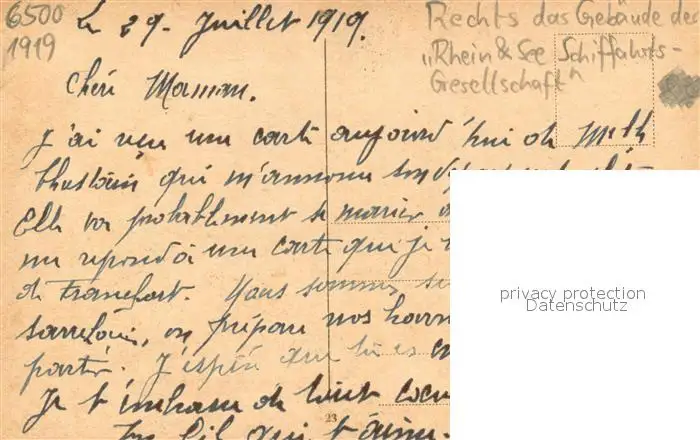 6500
1919
Le 29. Juillet 1919.
Rechts das Gebäude der
"Rhein & See Schiffahrts-
Gesellschaft"
Chéri Maman.
J'ai reçu une carte aujourd'hui de
qui m'annonce son
Elle va probablement se marier
me répond à une carte que je
de Francfort. Nous sommes
on prépare nos
partir. J'espère que tu es
Je t'embrasse de tout coeur
Ton fil qui t'aime.
23
privacy protection
Datenschutz